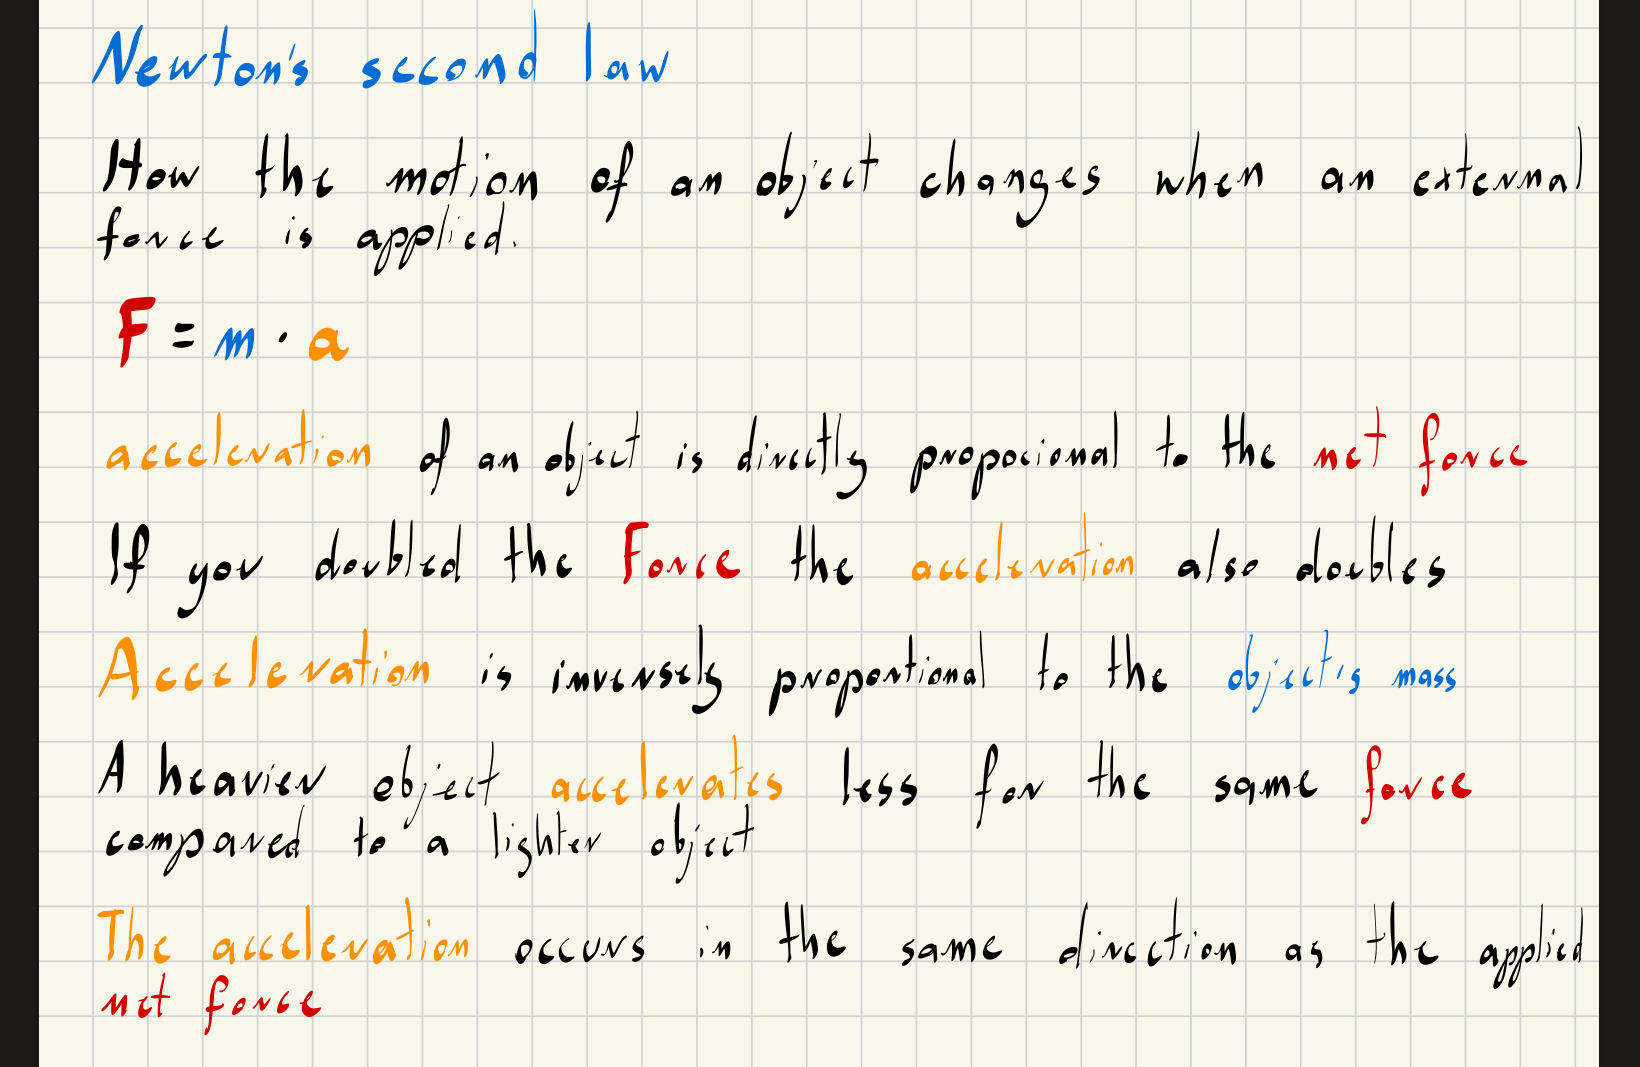 Newton's second law
How the motion of an object changes when an external
force is applied.
F = m · a
acceleration of an object is directly propocional to the net force
If you doubled the Force the acceleration also doubles
Acceleration is inversely proportional to the object's mass
A heavier object accelerates less for the same force
compared to a lighter object
The acceleration occurs in the same direction as the applied
net force